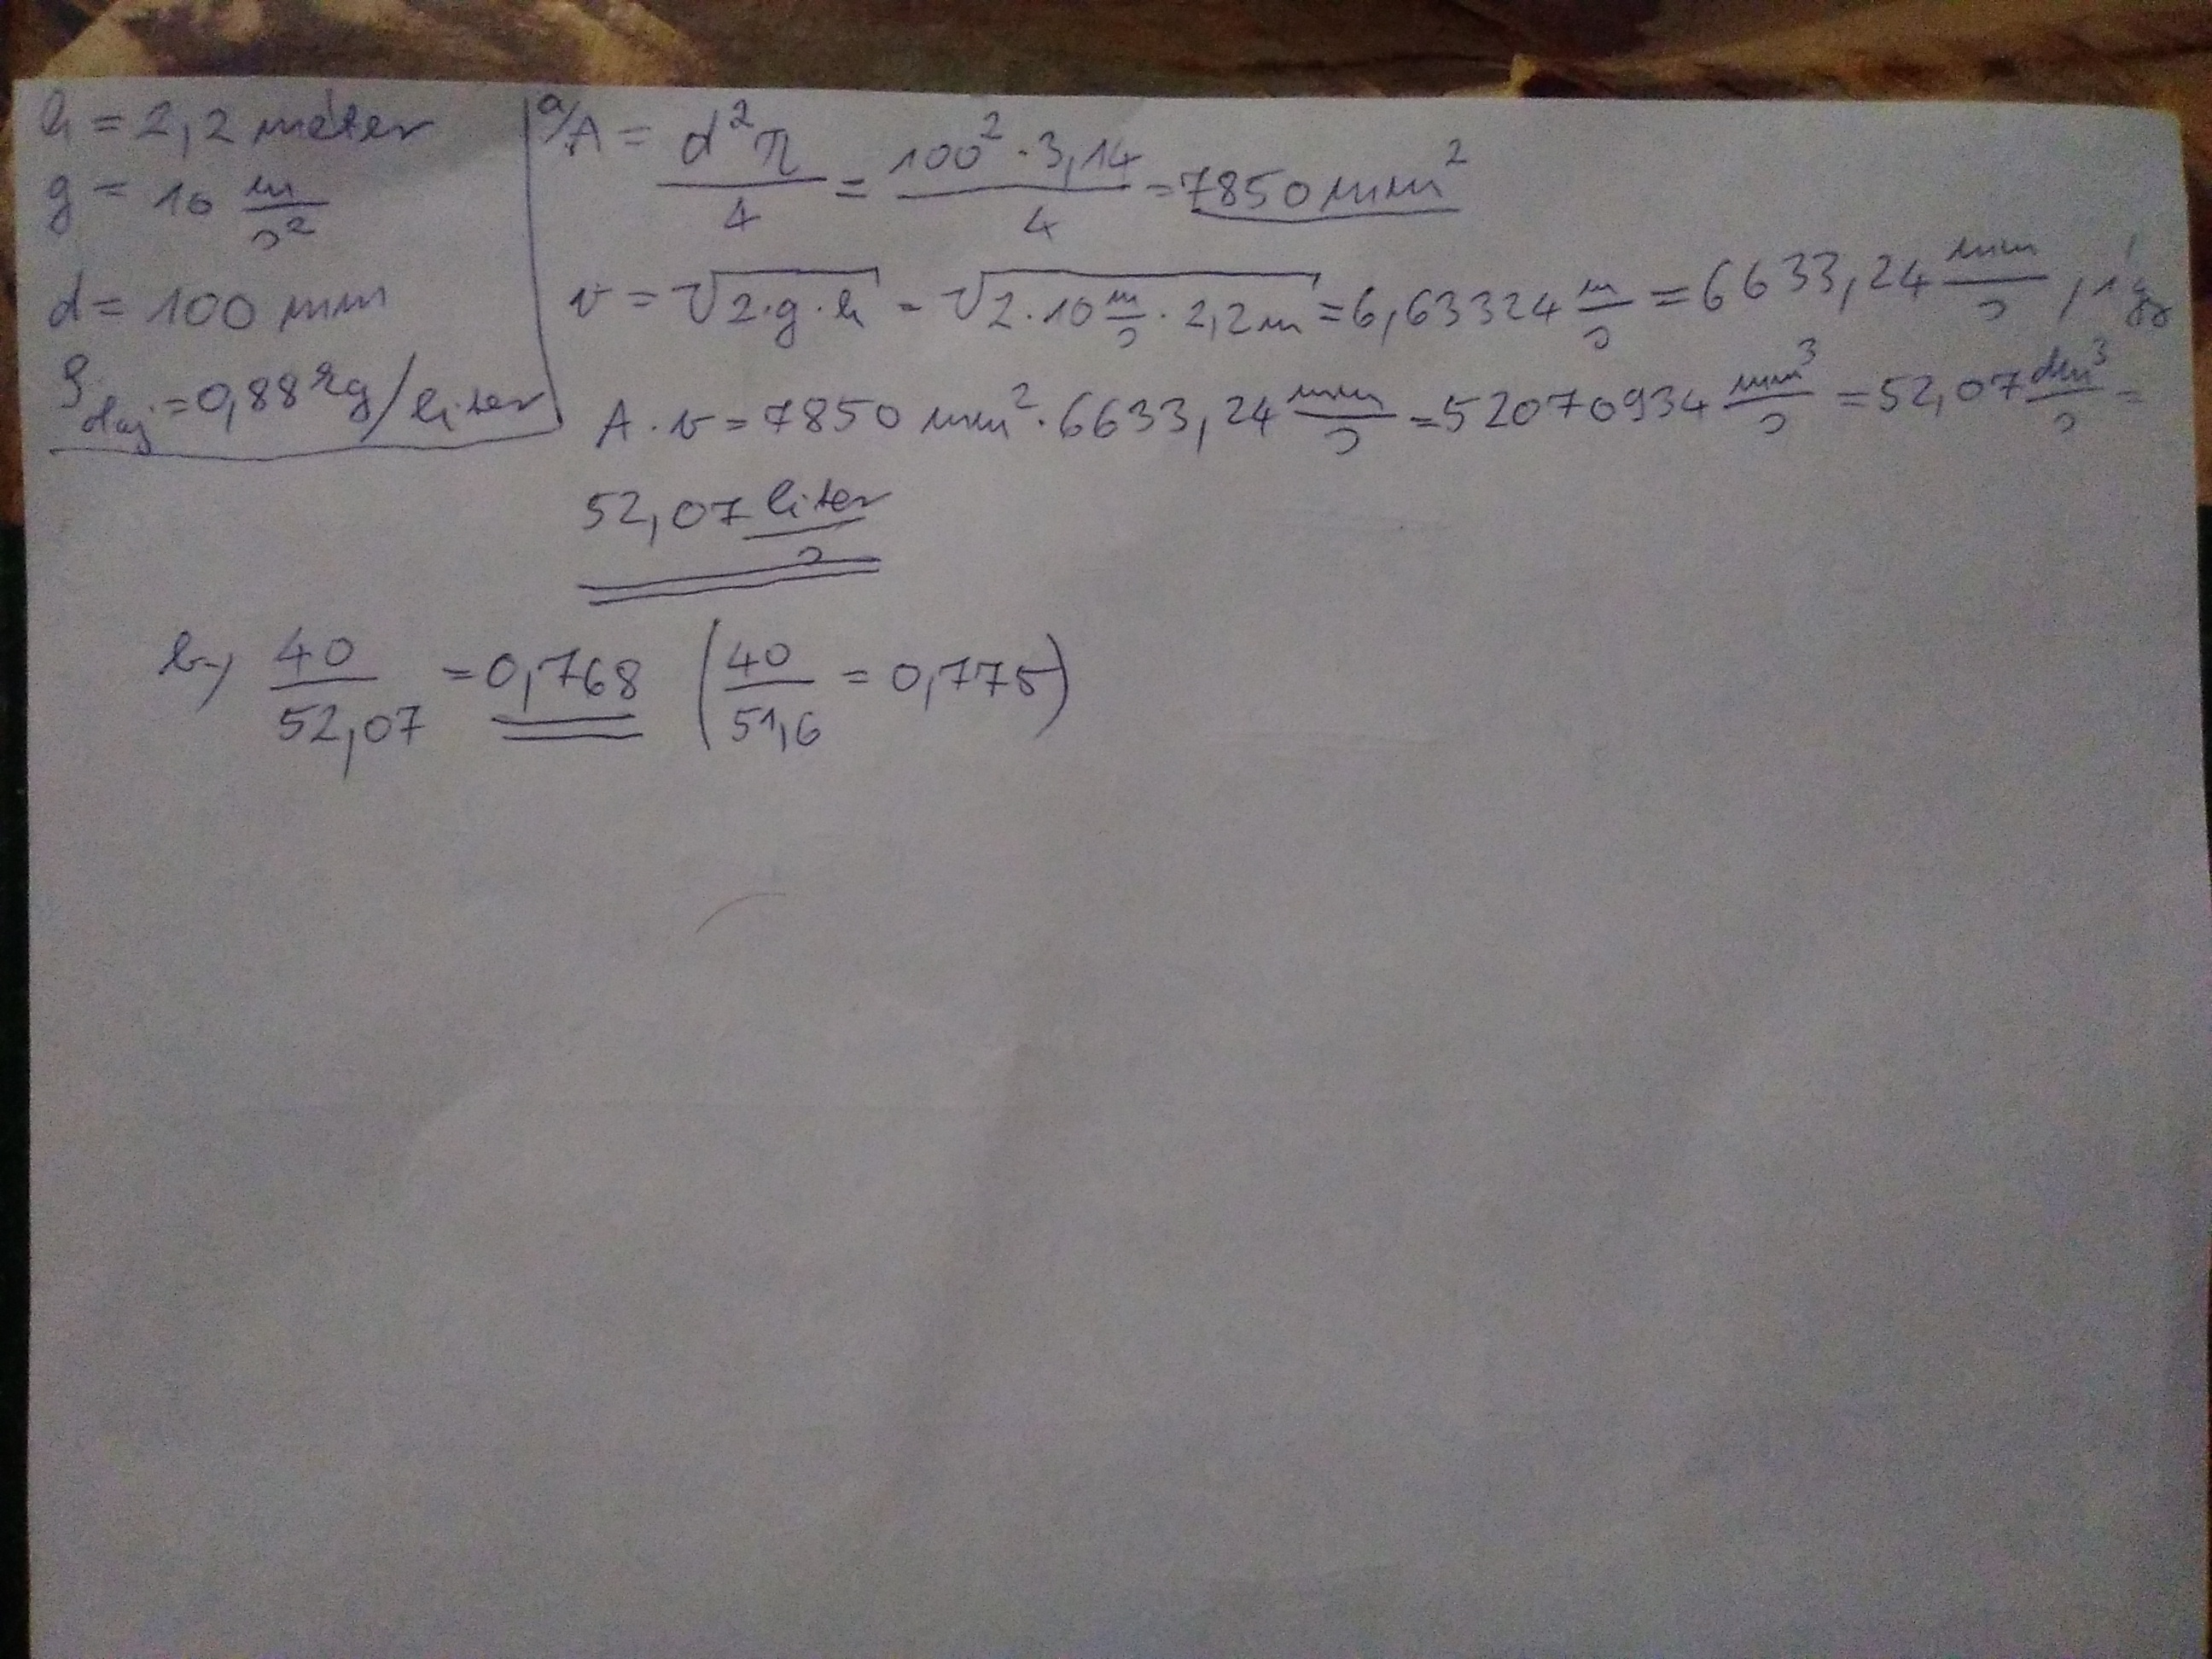 h = 2,2 méter
g = 10 m/s²
d = 100 mm
ρolaj = 0,88 kg/liter
a/ A = d²π/4 = 100² · 3,14/4 = 7850 mm²
v = √2·g·h = √2·10 m/s · 2,2 m = 6,63324 m/s = 6633,24 mm/s, így
A · v = 7850 mm² · 6633,24 mm/s = 52070934 mm³/s = 52,07 dm³/s =
52,07 liter/s
b, 40/52,07 = 0,768 (40/51,6 = 0,775)